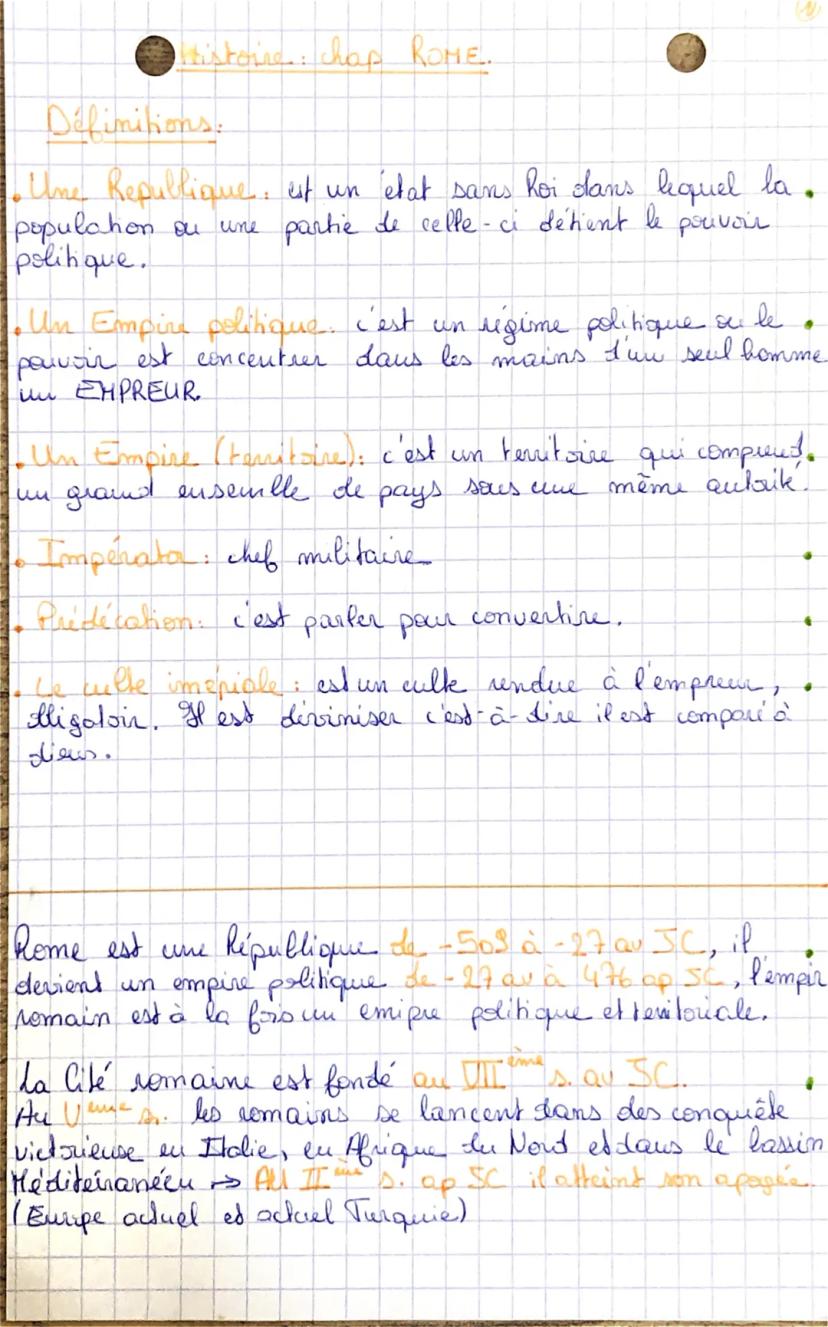 Histoire : chap ROME.
Définitions :
• Une Republique : est un état sans Roi dans lequel la
population ou une partie de celle-ci détient le pouvoir
politique.
• Un Empire politique : c'est un régime politique ou le
pouvoir est concentrer dans les mains d'un seul homme
un EMPREUR.
• Un Empire (territoire) : c'est un territoire qui comprend
un grand ensemble de pays sous une même autorité.
• Impérator : chef militaire
• Prédécation : c'est parler pour convertire.
• Le culte impériale : est un culte rendue à l'empreur,
. Il est diviniser c'est-à-dire il est comparé à
dieus.
Rome est une République de -509 à -27 av JC, il
devient un empire politique de -27 av à 476 ap JC, l'empir
romain est à la fois un emipre politique et territoriale.
La Cité romaine est fondé au VIIIème s. av JC.
Au Vème s. les romains se lancent dans des conquête
victorieuse en Italie, en Afrique du Nord et dans le bassin
Méditeranéen → AU IIème s. ap JC il atteint son apogée.
(Europe actuel et actuel Turquie)